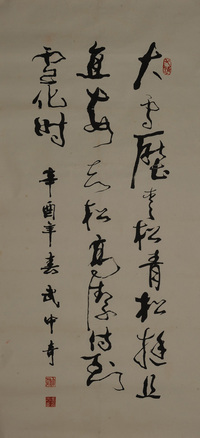 大雪压青松青松挺且
直要知松高洁待到
雪化时
辛酉年春武中奇